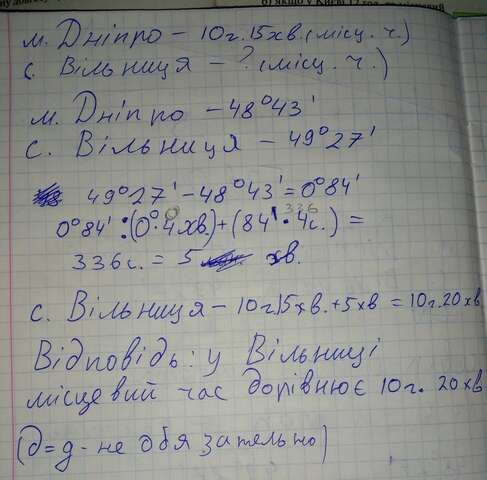 б) якщо у Києві 12 год
м. Дніпро - 10 г. 15 хв. (місц. ч.)
с. Вільниця - ? (місц. ч.)
м. Дніпро - 48°43'
с. Вільниця - 49°27'
49°27' - 48°43' = 0°84'
0°84' : (0°·4хв.) + (84'·4с.) =
0
336
336с. = 5 хв.
с. Вільниця - 10г.15хв. + 5хв = 10г.20хв
Відповідь: у Вільниці
місцевий час дорівнює 10г. 20хв
(д=g - не обязательно)